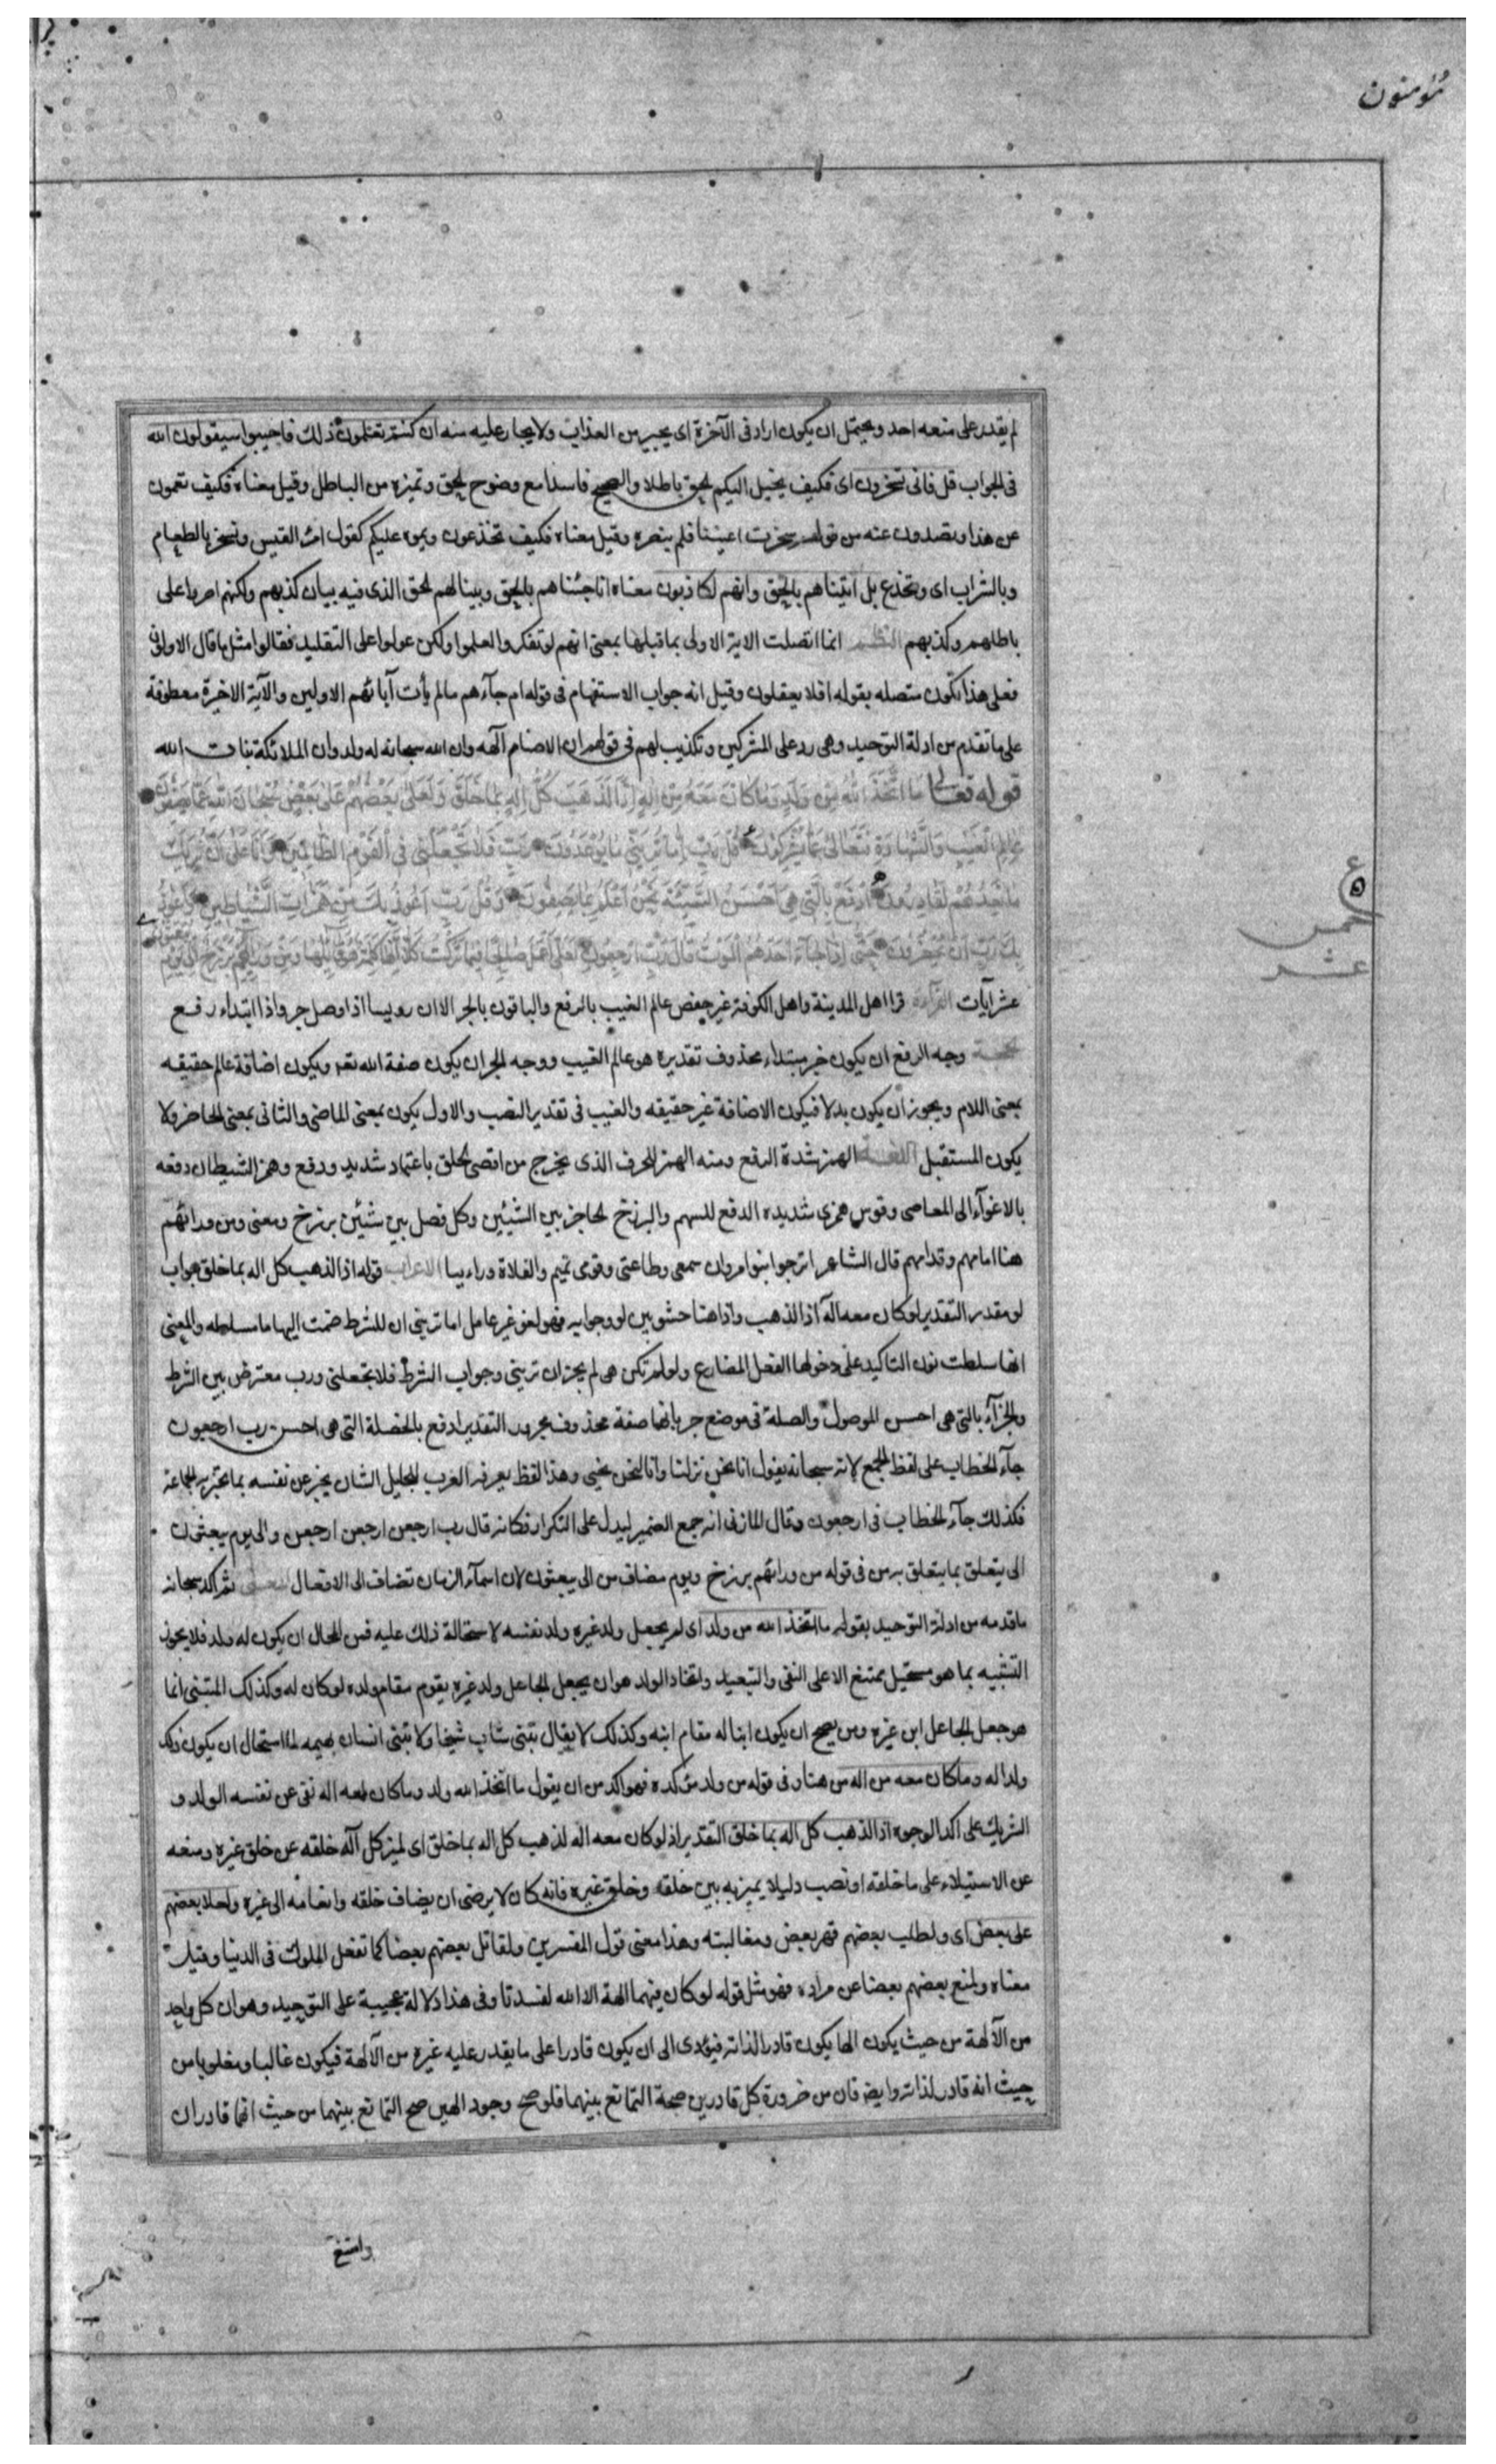 مؤمنون
لم يقدر على منعه احد ويحتمل ان يكون اراد فى الآخرة اى يجير من العذاب ولا يجار عليه منه ان كنتم تعلمون ذلك فاجيبوا سيقولون الله
فى الجواب قل فانى تسحرون اى فكيف يخيل اليكم الحق باطلا والصحيح فاسدا مع وضوح الحق وتميزه من الباطل وقيل معناه فكيف تعمون
عن هذا وتصدون عنه من قولهم سحرت اعيننا فلم ينصره وقيل معناه فكيف تخذعون ويموه عليكم كقول امرء القيس ونسحر بالطعام
وبالشراب اى ونخدع بل اتيناهم بالحق وانهم لكاذبون معناه انا جئناهم بالحق وبينا لهم الحق الذى فيه بيان كذبهم ولكنهم اصروا على
باطلهم وكذبهم النظم انما اتصلت الاية الاولى بما قبلها بمعنى انهم لو تفكروا لعلموا ولكن عولوا على التقليد فقالوا مثل ما قال الاولون
فعلى هذا تكون متصله بقوله افلا يعقلون وقيل انه جواب الاستفهام فى قوله ام جآءهم ما لم يأت آبائهم الاولين والآية الاخيرة معطوفة
على ما تقدم من ادلة التوحيد وهى رد على المشركين وتكذيب لهم فى قولهم ان الاصنام آلهه وان الله سبحانه له ولد وان الملائكة بنات الله
قوله تعالى مَا اتَّخَذَ اللهُ مِن وَلَدٍ وَمَا كَانَ مَعَهُ مِنْ اِلٰهٍ اِذًا لَذَهَبَ كُلُّ اِلٰهٍ بِمَا خَلَقَ وَلَعَلٰى بَعْضُهُمْ عَلٰى بَعْضٍ سُبْحَانَ اللهِ عَمَّا يَصِفُونَ
عَالِمِ الْغَيْبِ وَالشَّهَادَةِ فَتَعَالٰى عَمَّا يُشْرِكُونَ قُلْ رَبِّ اِمَّا تُرِيَنِّى مَا يُوعَدُونَ رَبِّ فَلَا تَجْعَلْنِى فِى الْقَوْمِ الظَّالِمِينَ وَاِنَّا عَلٰى اَنْ نُرِيَكَ
مَا نَعِدُهُمْ لَقَادِرُونَ اِدْفَعْ بِالَّتِى هِىَ اَحْسَنُ السَّيِّئَةَ نَحْنُ اَعْلَمُ بِمَا يَصِفُونَ وَقُلْ رَبِّ اَعُوذُ بِكَ مِنْ هَمَزَاتِ الشَّيَاطِينِ وَاَعُوذُ
بِكَ رَبِّ اَنْ يَحْضُرُونِ حَتّٰى اِذَا جَآءَ اَحَدَهُمُ الْمَوْتُ قَالَ رَبِّ ارْجِعُونِ لَعَلِّى اَعْمَلُ صَالِحًا فِيمَا تَرَكْتُ كَلَّا اِنَّهَا كَلِمَةٌ هُوَ قَآئِلُهَا وَمِنْ وَرَآئِهِمْ بَرْزَخٌ اِلٰى يَوْمِ
يبعثون
٥
خمس
عشر
عشر آيات القراءة قرا اهل المدينة واهل الكوفة غير حفص عالم الغيب بالرفع والباقون بالجر الا ان رويسا اذا وصل جر واذا ابتداء رفع
الحجة وجه الرفع ان يكون خبر مبتداء محذوف تقديره هو عالم الغيب ووجه الجر ان يكون صفة الله تعه ويكون اضافة عالم حقيقه
بمعنى اللام ويجوز ان يكون بدلا فيكون الاضافة غير حقيقه والغيب فى تقدير النصب والاول يكون بمعنى الماضى والثانى بمعنى الحاضر ولا
يكون المستقبل اللغة الهمز شدة الدفع ومنه الهمز للحرف الذى يخرج من اقصى الحلق باعتماد شديد ودفع وهمز الشيطان دفعه
بالاغوآء الى المعاصى وقوس همزى شديده الدفع للسهم والبرزخ الحاجز بين الشيئين وكل فصل بين شئين برزخ ومعنى ومن ورائهم
هنا امامهم وقدامهم قال الشاعر اترجو ابنوا مروان سمعى وطاعتى وقومى تميم والفلاة ورايبا الاعراب قوله اذا لذهب كل اله بما خلق جواب
لو مقدر التقدير لو كان معه اله اذا لذهب واذا هنا حشو بين لو وجوابه فهو لغو غير عامل اما ترينى ان للشرط ضمت اليها ما مسلطه والمعنى
انها سلطت نون التاكيد على دخولها الفعل المضارع ولو لم تكن هى لم يجز ان ترينى وجواب الشرط فلا تجعلنى ورب معترض بين الشرط
والجزآء بالتى هى احسن الموصول والصلة فى موضع جر بانها صفة محذوف مجرور التقدير ادفع بالخصلة التى هى احسن رب ارجعون
جآء الخطاب على لفظ الجمع لانه سبحانه يقول انا نحن نزلنا وانا لنحن نحيى وهذا لفظ يعرفه العرب للجليل الشان يخبر عن نفسه بما يخبر به الجماعة
فكذلك جآء الخطاب فى ارجعون وقال المازنى انه جمع الضمير ليدل على التكرار فكانه قال رب ارجعن ارجعن ارجعن والى يوم يبعثون
الى يتعلق بما يتعلق به من فى قوله من ورائهم برزخ ويوم مضاف من الى يبعثون لان اسمآء الزمان تضاف الى الافعال المعنى ثم اكد سبحانه
ما قدمه من ادلة التوحيد بقوله ما اتخذ الله من ولد اى لم يجعل ولد غيره ولد نفسه لاستحالة ذلك عليه فمن المحال ان يكون له ولد فلا يجوز
التشبيه بما هو مستحيل ممتنع الا على النفى والتبعيد واتخاذ الولد هو ان يجعل الجاعل ولد غيره يقوم مقام ولده لو كان له وكذلك المتبنى انما
هو جعل الجاعل ابن غيره ومن يصح ان يكون ابنا له مقام ابنه وكذلك لا يقال تبنى شاب شيخا ولا تبنى انسان بهيمه لما استحال ان يكون ذلك
ولدا له وما كان معه من اله من هنا وفى قوله من ولد مؤكده فهو اكد من ان يقول ما اتخذ الله ولد وما كان معه اله نفى عن نفسه الولد و
الشريك على اكد الوجوه اذا لذهب كل اله بما خلق التقدير اذ لو كان معه اله لذهب كل اله بما خلق اى لميز كل آله خلقه عن خلق غيره ومنعه
عن الاستيلاء على ما خلقه او نصب دليلا يميز به بين خلقه وخلق غيره فانه كان لا يرضى ان يضاف خلقه وانعامه الى غيره ولعلا بعضهم
على بعض اى ولطلب بعضهم قهر بعض ومغالبته وهذا معنى قول المفسرين ولقاتل بعضهم بعضا كما تفعل الملوك فى الدنيا وقيل
معناه ولمنع بعضهم بعضا عن مراده فهو مثل قوله لو كان فيهما الهة الا الله لفسدتا وفى هذا دلالة عجيبة على التوحيد وهو ان كل واحد
من الآلهة من حيث يكون الها يكون قادرا لذاته فيؤدى الى ان يكون قادرا على ما يقدر عليه غيره من الآلهة فيكون غالبا ومغلوبا من
حيث انه قادر لذاته وايضا فان من ضرورة كل قادرين صحة التمانع بينهما فلو صح وجود الهين صح التمانع بينهما من حيث انهما قادران
وامتنع